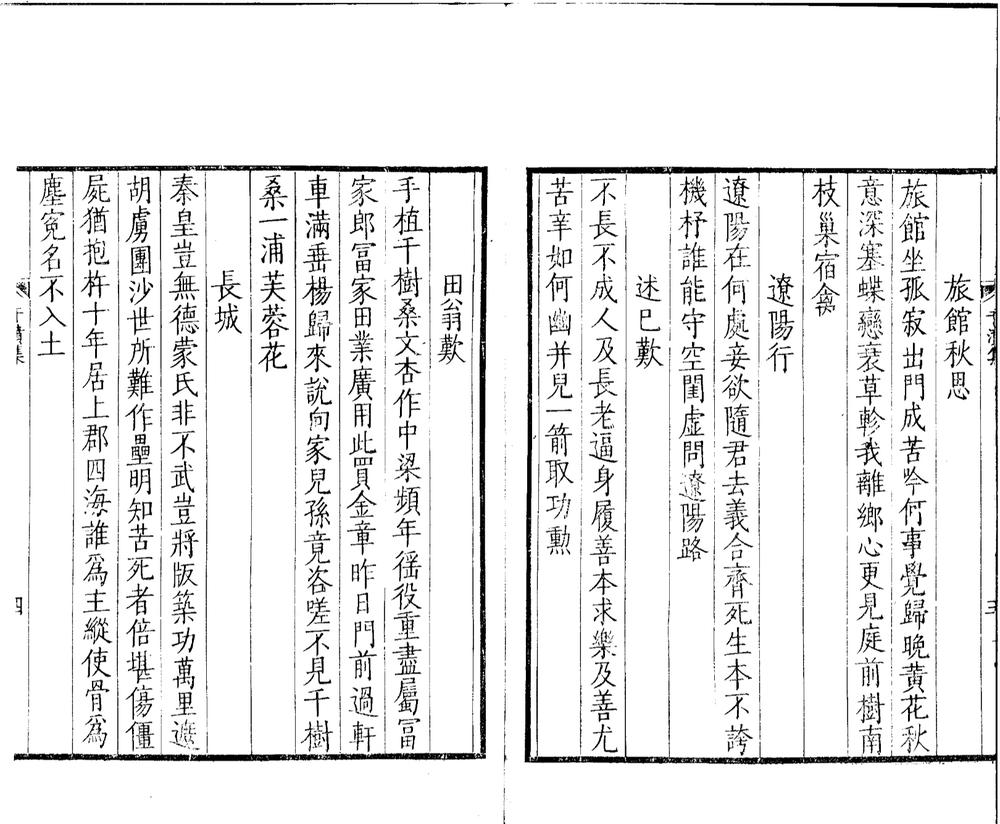 旅館秋思
旅館坐孤寂出門成苦吟何事覺歸晚黃花秋
意深塞蝶戀衰草軫我離鄉心更見庭前樹南
枝巢宿禽
遼陽行
遼陽在何處妾欲隨君去義合齊死生本不誇
機杼誰能守空閨虛問遼陽路
述己歎
不長不成人及長老逼身履善本求樂及善尤
苦辛如何幽并兒一箭取功勲
田翁歎
手植千樹桑文杏作中梁頻年徭役重盡屬富
家郎富家田業廣用此買金章昨日門前過軒
車滿垂楊歸來說向家兒孫竟咨嗟不見千樹
桑一浦芙蓉花
長城
秦皇豈無德蒙氏非不武豈將版築功萬里遮
胡虜團沙世所難作壘明知苦死者倍堪傷僵
屍猶抱杵十年居上郡四海誰爲主縱使骨爲
塵寃名不入土
四